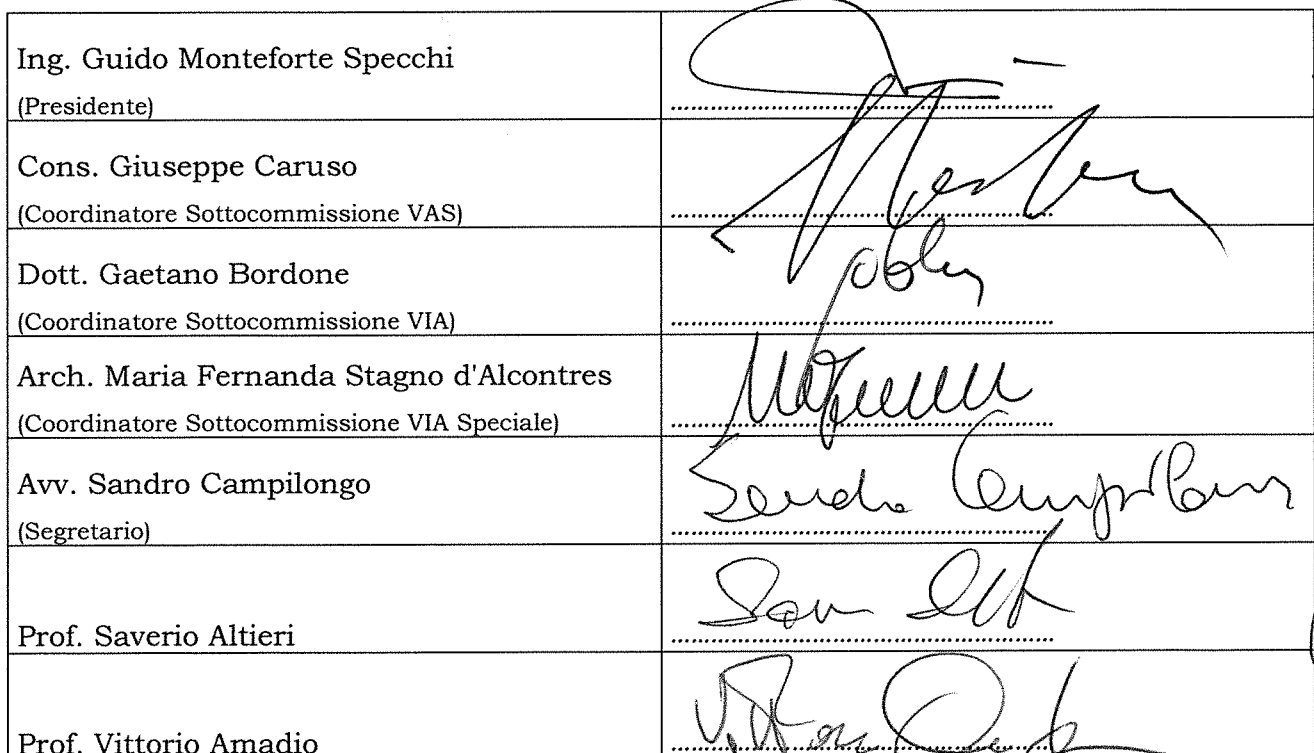 Ing. Guido Monteforte Specchi
(Presidente)
Cons. Giuseppe Caruso
(Coordinatore Sottocommissione VAS)
Dott. Gaetano Bordone
(Coordinatore Sottocommissione VIA)
Arch. Maria Fernanda Stagno d'Alcontres
(Coordinatore Sottocommissione VIA Speciale)
Avv. Sandro Campilongo
(Segretario)
Sandro Campilongo
Prof. Saverio Altieri
Prof. Vittorio Amadio